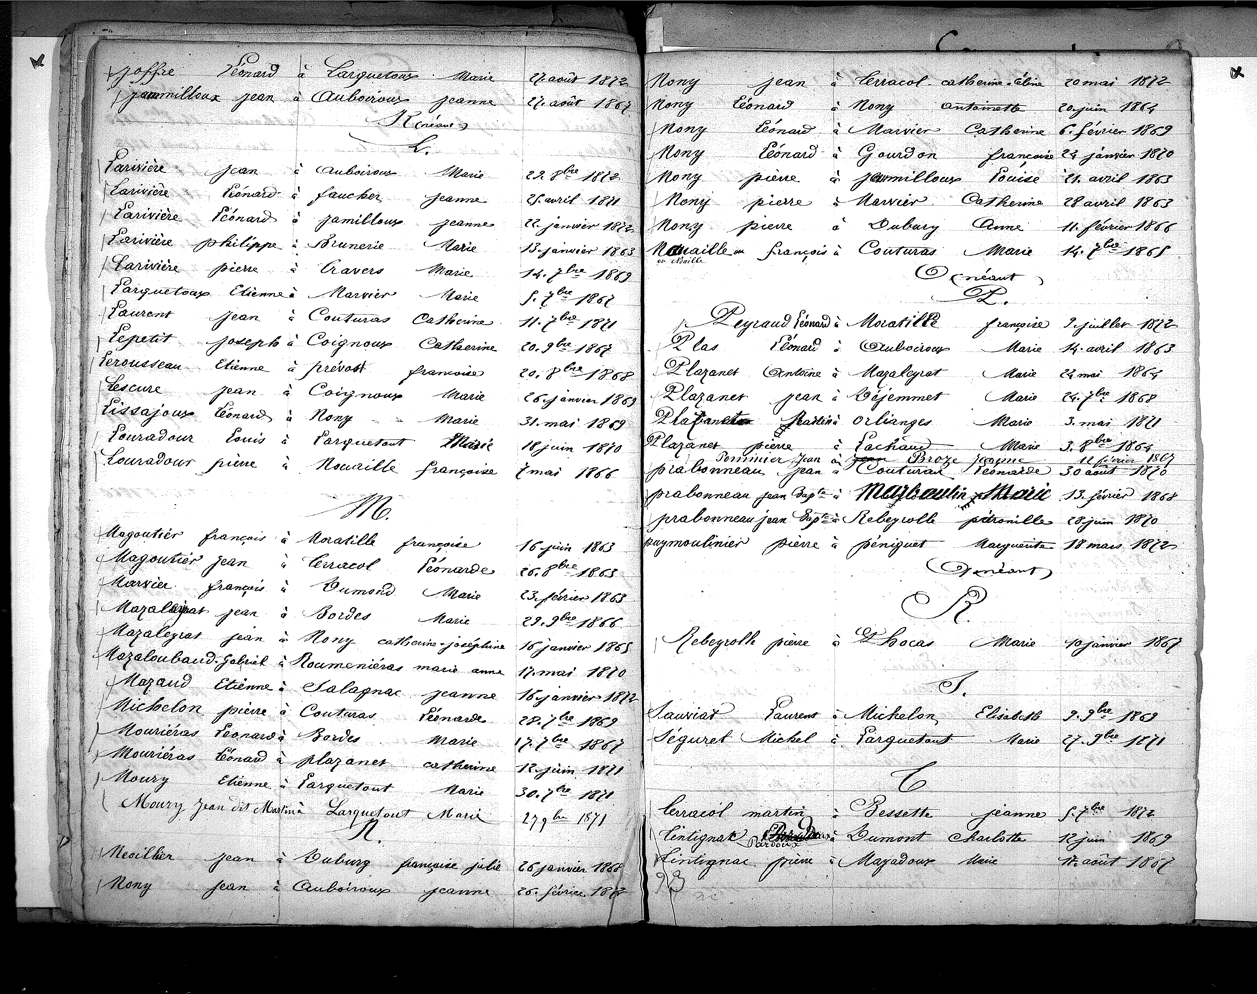 Joffre Léonard à Larquetoux Marie 27 août 1872
Jammilloux jean à Auboiroux jeanne 24 août 1867
K (néant)
L.
Larivière jean à Auboiroux Marie 29. 8bre 1872
Larivière Léonard à faucher jeanne 25 avril 1871
Larivière Léonard à jamilloux jeanne 22 janvier 1872
Larivière philippe à Brunerie Marie 13 janvier 1863
Larivière pierre à Travers Marie 14. 7bre 1869
Larquetoux Etienne à Marvier Marie 5. 7bre 1867
Laurent jean à Couturas Catherine 11. 7bre 1871
Lepetit joseph à Coignoux Catherine 20. 9bre 1867
Lerousseau Etienne à prévost francoise 20. 8bre 1868
Lescure jean à Coignoux Marie 26 janvier 1869
Lissajoux Léonard à Nony Marie 31. mai 1869
Louradour Louis à Larquetout Marie 18 juin 1870
Louradour pierre à Nouaille françoise 7 mai 1866
M.
Magoutier françois à Moratille françoise 16 juin 1863
Magoutier jean à Terracol Léonarde 26. 8bre 1863
Marvier françois à Dumond Marie 23. février 1863
Mazaleyrat jean à Bordes Marie 29. 9bre 1866
Mazaleyrat jean à Nony catherine-joséphine 16 janvier 1865
Mazaloubaud Gabriel à Roumeniéras marie anne 17. mai 1870
Mazaud Etienne à Salagnac jeanne 16 janvier 1872
Michelon pierre à Couturas Léonarde 28. 7bre 1869
Mouriéras Léonard à Bordes Marie 17. 7bre 1867
Mouriéras Léonard à plazanet catherine 12 juin 1871
Moury Etienne à Larquetout Marie 30. 7bre 1871
Moury Jean dit Martin à Larquetout Marie 27 9bre 1871
N
Neillier jean à Duburg françoise julie 26 janvier 1866
Nony jean à Auboiroux jeanne 26. février 1872
Nony jean à Terracol catherine-céline 20 mai 1872
Nony Léonard à Nony antoinette 20 juin 1864
Nony Léonard à Marvier Catherine 6. février 1869
Nony Léonard à Gourdon francoise 24 janvier 1870
Nony pierre à jammilloux Louise 21. avril 1863
Nony pierre à Marvier Catherine 28 avril 1863
Nony pierre à Dubury Anne 11. février 1866
Nouaille françois à Couturas Marie 14. 7bre 1865
ou Noaille
O (néant)
P.
Peyraud Léonard à Moratille françoise 9 juillet 1872
Plas Léonard à Auboiroux Marie 14 avril 1863
Plazanet Antoine à Mazaleyrat Marie 24 mai 1864
Plazanet jean à Déjemmet Marie 24. 7bre 1868
Plazanet Martin à Orlianges Marie 3. mai 1871
Plazanet pierre à Lachaud Marie 3. 8bre 1864
Pommier Jean à Broze 12 février 1867
prabonneau jean à Couturas Léonarde 30 août 1870
prabonneau jean Bapte à Marboutin Marie 13. février 1868
prabonneau jean Bapte à Rebeyrolle pétronille 28 juin 1870
puymoulinier pierre à péniguet Marguerite 18 mars 1872
Q (néant)
R.
Rebeyrolle pierre à Marie janvier 1867
S.
Sauviat Laurent à Michelon Elisabeth 9. 9bre 1869
Séguret Michel à Larquetout Marie 27. 9bre 1871
T
Terracol martin à Bessette jeanne 5. 7bre 1872
Tintignac à Dumont Charlotte 12 juin 1869
Pardoux
Tintignac pierre à Mazadoux Marie août 1867
93